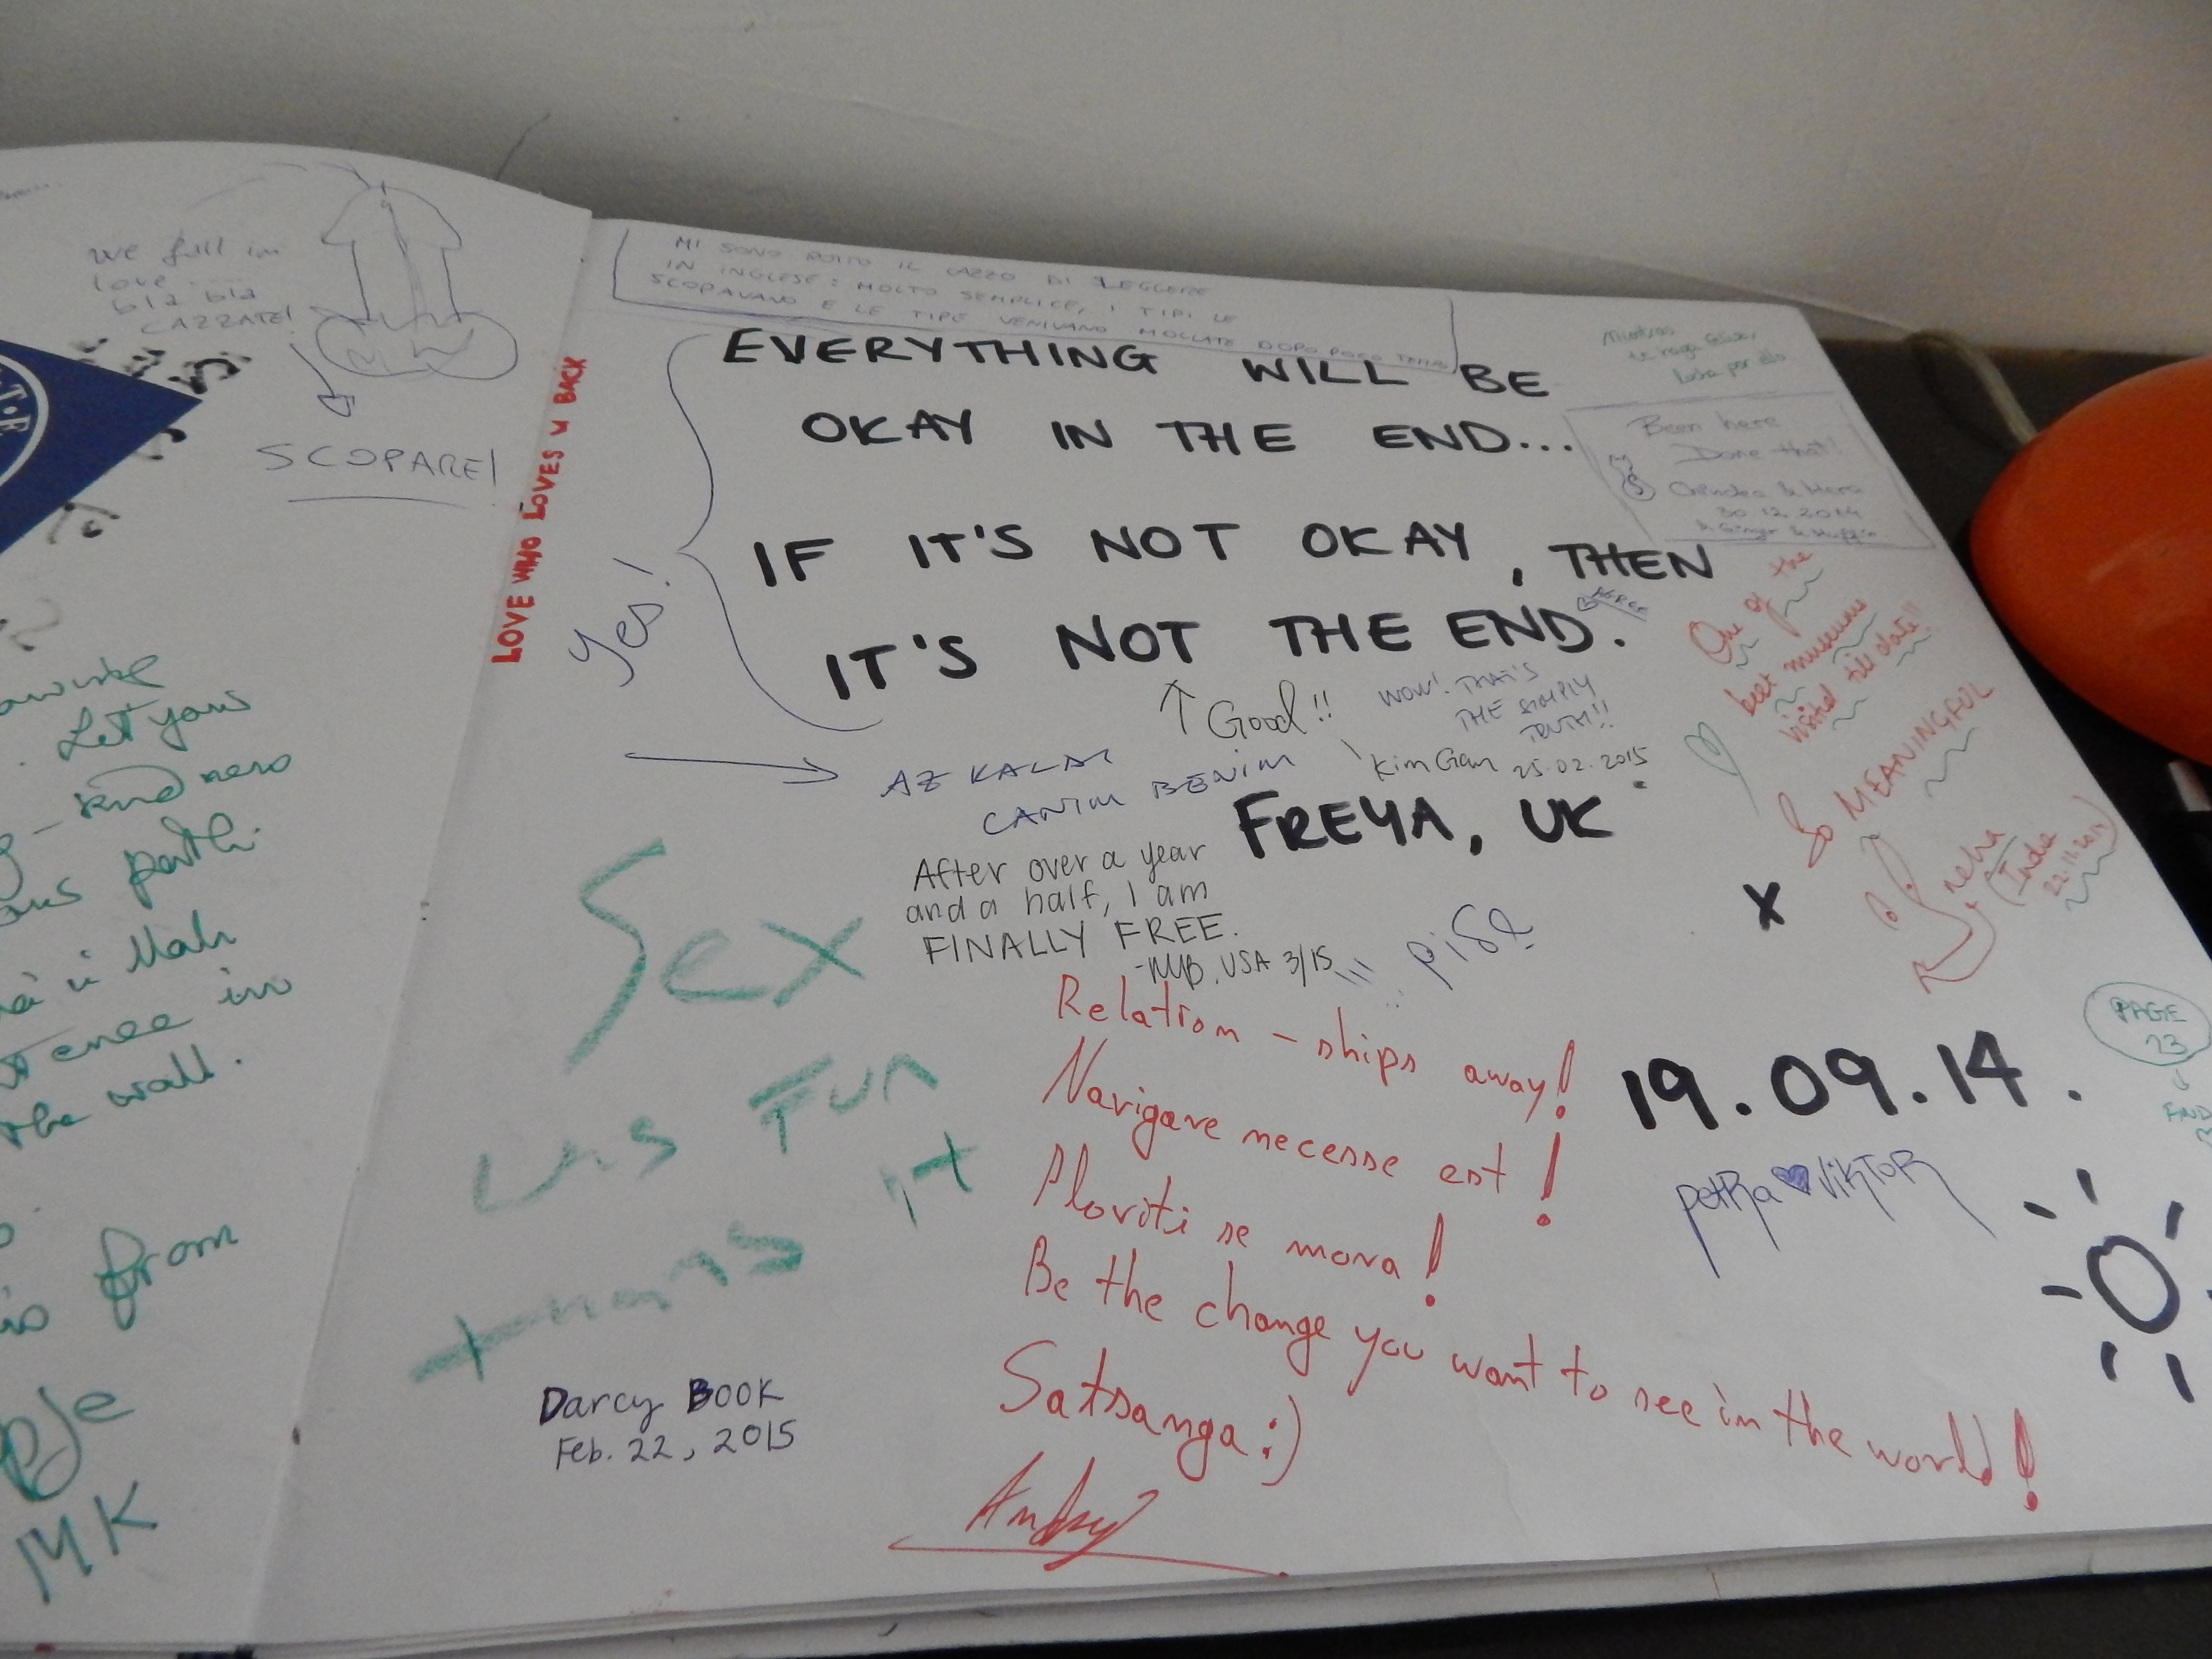 we fall in
love ....
bla bla
CAZZATE!
SCOPARE!
Let your
kindness
in
the wall.
from
MK
LOVE WHO LOVES U BACK
MI SONO ROTTO IL CAZZO DI LEGGERE
IN INGLESE: MOLTO SEMPLICE, I TIPI LE
SCOPAVANO E LE TIPE VENIVANO MOLLATE DOPO POCO TEMPO
EVERYTHING WILL BE
OKAY IN THE END...
IF IT'S NOT OKAY, THEN
IT'S NOT THE END.
Yes!
Been here
Done that!
30.12.2014
One of the
best museums
visited till date!!
So MEANINGFUL
Sneha
(India
22.11.2014)
↑ Good!!
WOW! THAT'S
THE SIMPLY
TRUTH!!
25.02.2015
AZ KALDI
CANIM BENIM
FREYA, UK
x
After over a year
and a half, I am
FINALLY FREE.
USA 3/15
Sex
was Fun
Relation-ships away!
Navigare necesse est!
Ploviti se mora!
Be the change you want to see in the world!
Satsanga :)
19.09.14.
petRa ♥ viKTOR
PAGE
23
Darcy BOOK
Feb. 22, 2015